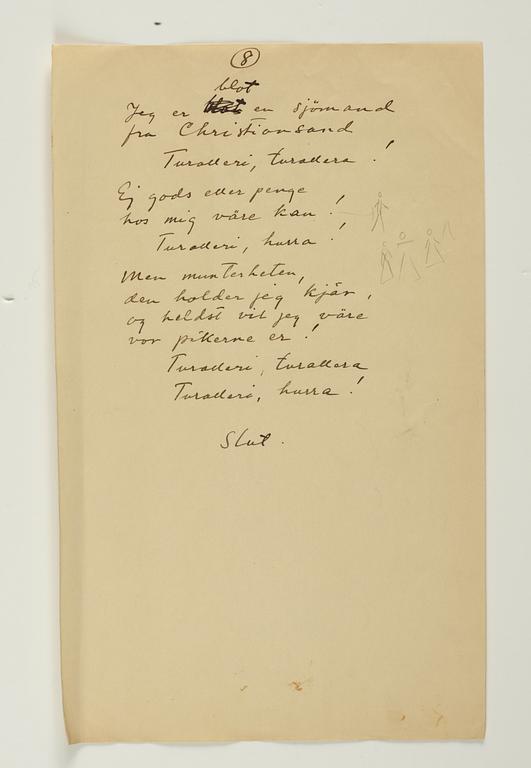 8
blot
Jeg er en sjömand
fra Christiansand
Turalleri, turallera !
Ej gods eller penge
hos mig väre kan !
Turalleri, hurra !
Men munterheten,
den holder jeg kjär,
og heldst vil jeg väre
vor pikerne er !
Turalleri, turallera
Turalleri, hurra !
Slut.